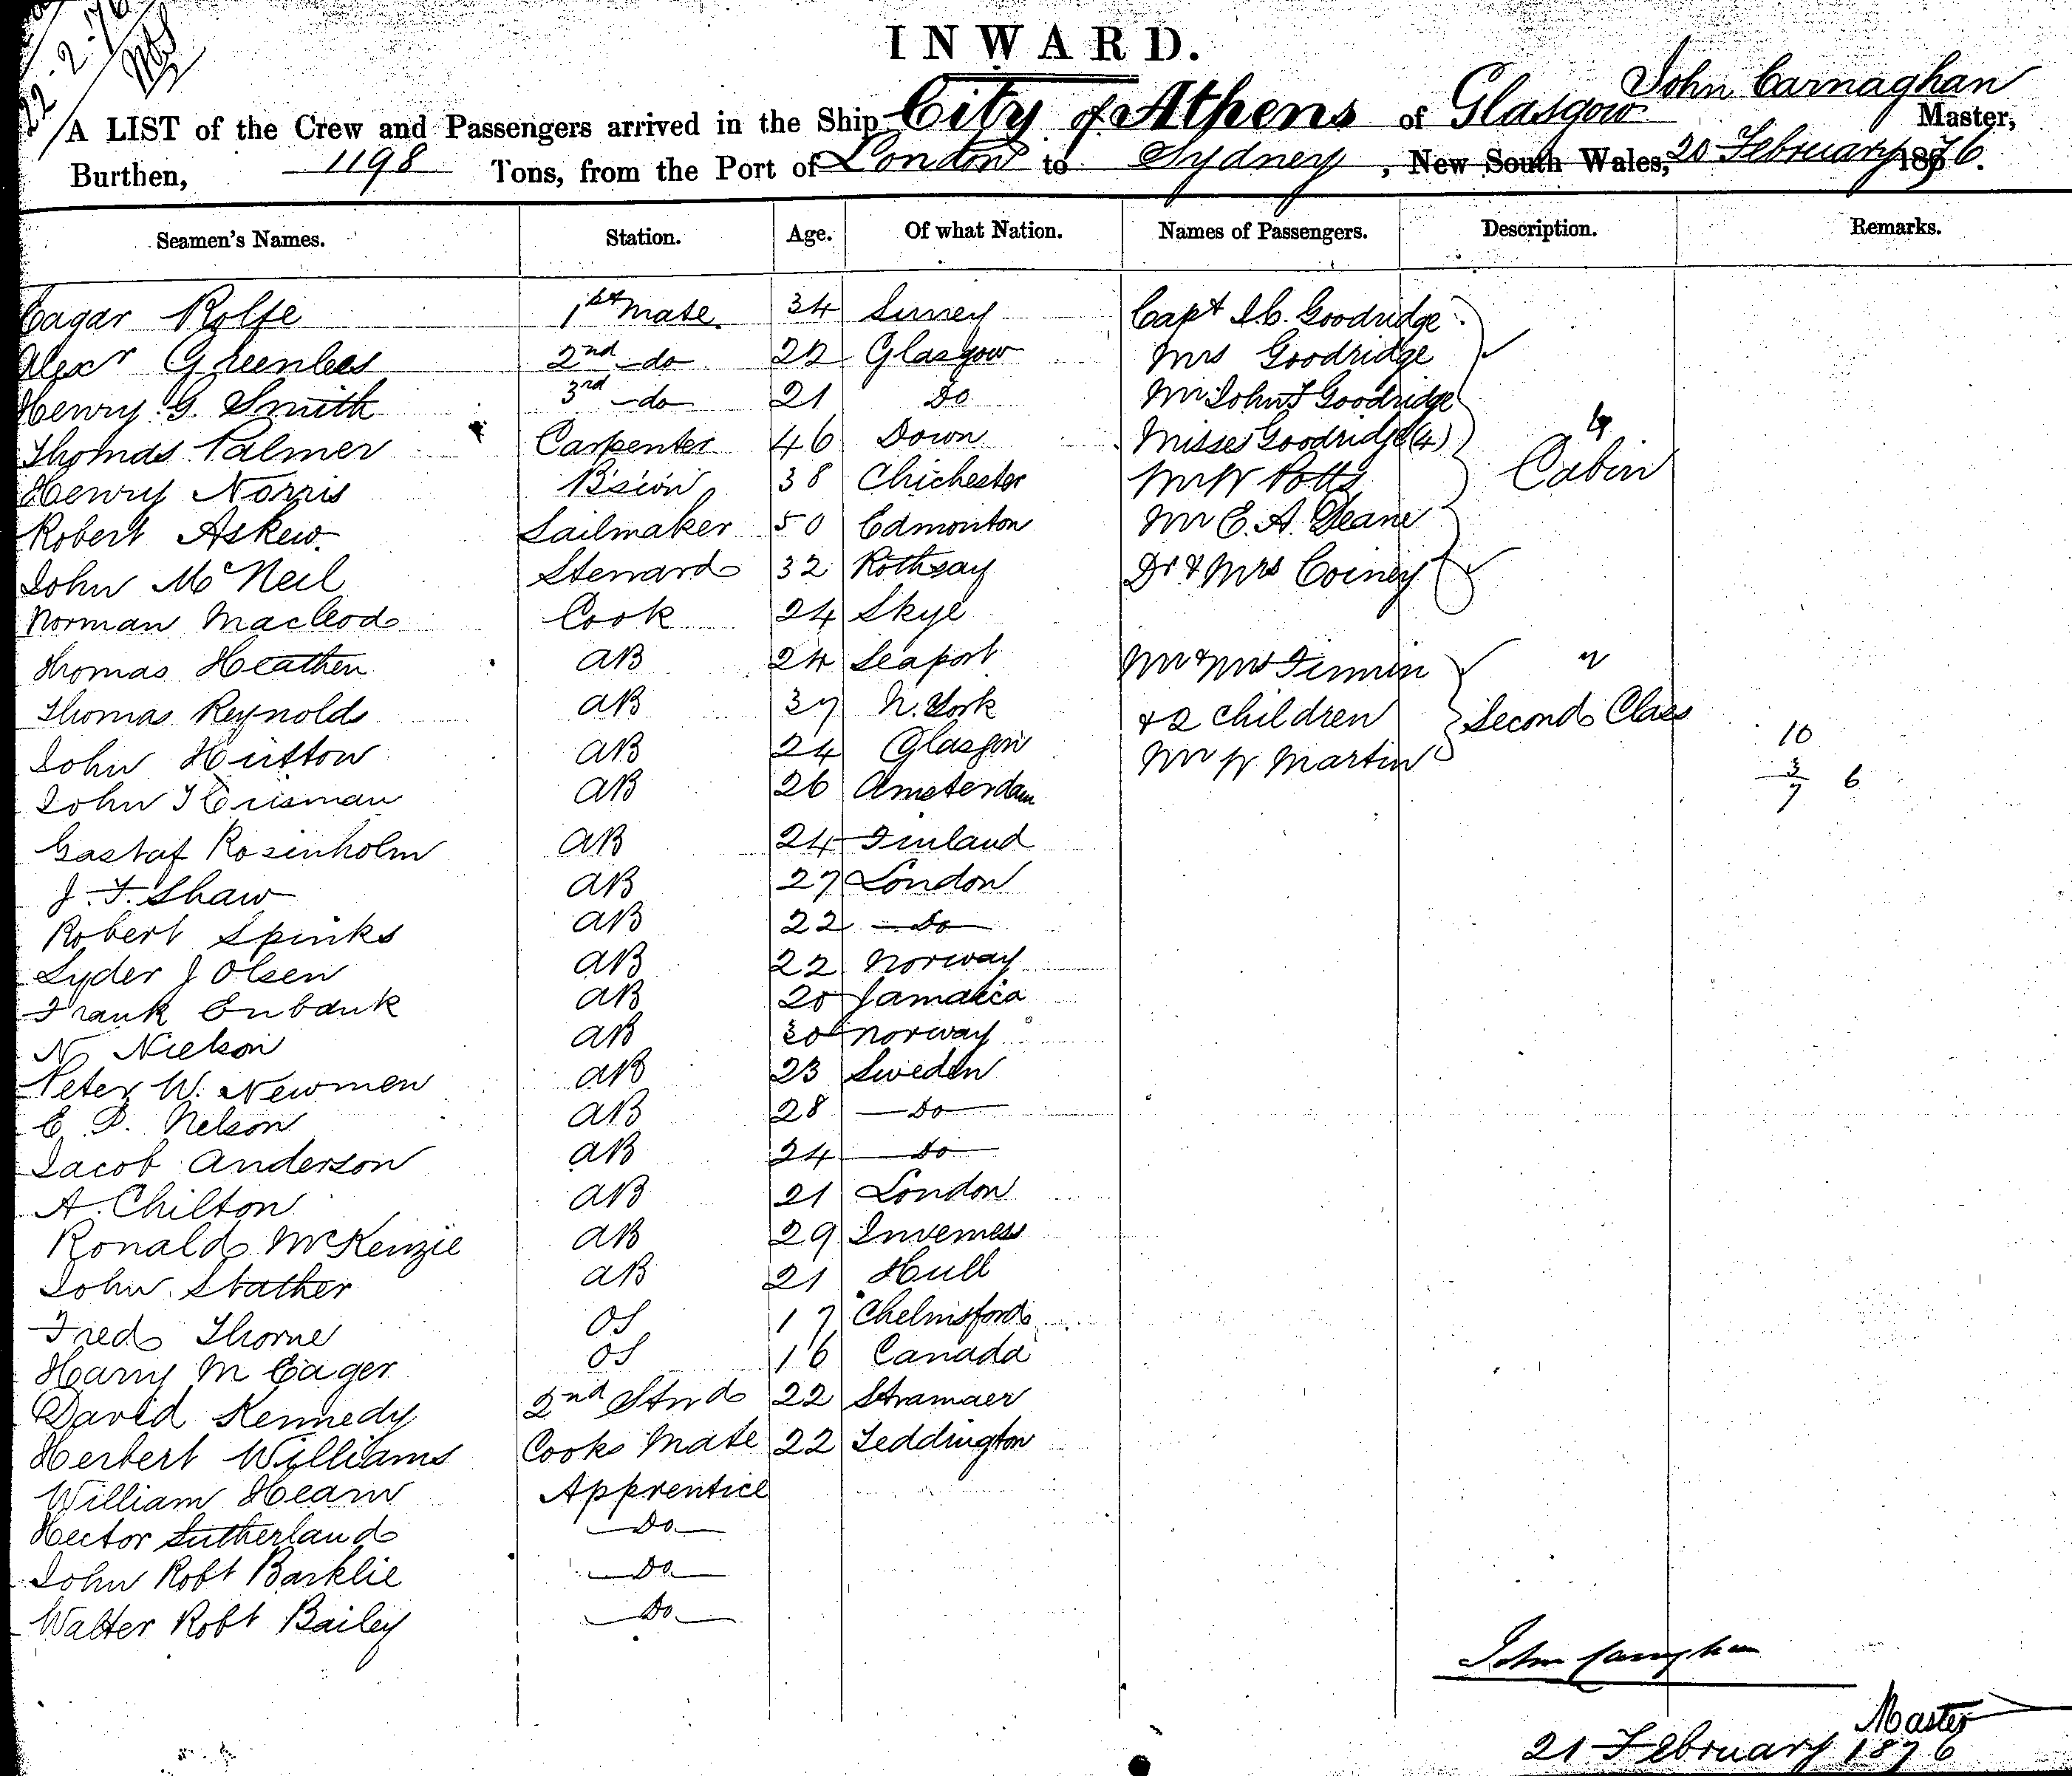 22-2-76
INWARD.
John Carnaghan
A LIST of the Crew and Passengers arrived in the Ship City of Athens of Glasgow Master,
Burthen, 1198 Tons, from the Port of London to Sydney, New South Wales, 20 February 1876.
Seamen's Names. Station. Age. Of what Nation. Names of Passengers. Description. Remarks.
Rolfe 1st Mate. 34 Surrey Capt Goodridge
Alexr Greenlees 2nd do 22 Glasgow Mrs Goodridge
Henry G. Smith 3rd do 21 Do Mr John Goodridge
Thomas Palmer Carpenter 46 Down Misses Goodridge (4) Cabin
Henry Norris 38 Chichester Mr W Potts
Robert Askew. Sailmaker 50 Edmonton Mr E. A. Deane
John McNeil Steward 32 Rothsay Dr & Mrs
Norman Macleod Cook 24 Skye
Thomas Heathen AB 24 Seaport Mr & Mrs
Thomas Reynolds AB 37 N. York & 2 children Second Class
John Hutton AB 24 Glasgow Mr W Martin 10
John AB 26 Amsterdam 3 6
7
Gastaf Rosinholm AB 24 Finland
J. F. Shaw AB 27 London
Robert Spinks AB 22 Do
Lyder J Olsen AB 22 Norway
Frank Eubank AB 20 Jamaica
N Nielson AB 30 Norway
Peter W. Newmen AB 23 Sweden
E. P. Nelson AB 28 Do
Jacob Anderson AB 24 Do
A. Chilton AB 21 London
Ronald McKenzie AB 29 Inverness
John Stather AB 21 Hull
Fred Thorne OS 17 Chelmsford
Harry M Eager OS 16 Canada
David Kennedy 2nd Stwd 22 Stranraer
Herbert Williams Cooks Mate 22 Teddington
William Hearn Apprentice
Hector Sutherland Do
John Robt Barklie Do
Walter Robt Bailey Do
John Carnaghan
Master
21 February 1876